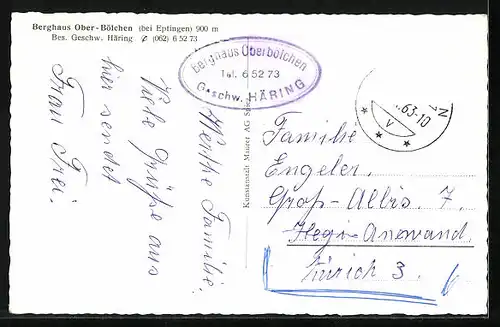 Berghaus Ober-Bölchen (bei Eptingen) 900 m
Bes. Geschw. Häring ✆ (062) 6 52 73
Berghaus Oberbölchen
Tel. 6 52 73
Geschw. HÄRING
63-10
V
N
Kunstanstalt Maurer AG
Werthe Familie!
Viele Grüße aus
hier sendet
Frau Frei.
Familie
Engeler.
Groß-Albis 7.
Zürich 3.